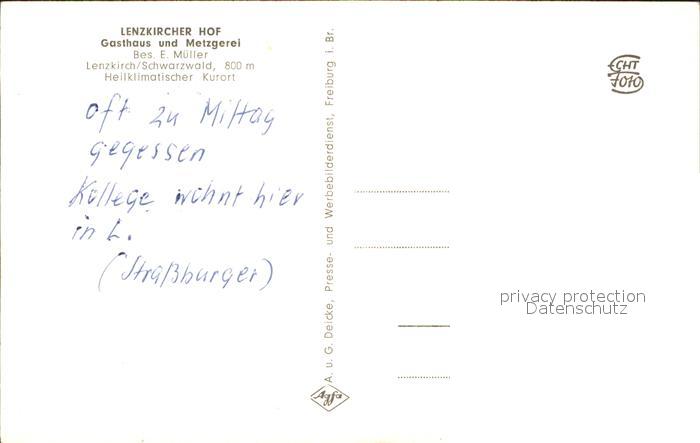 LENZKIRCHER HOF
Gasthaus und Metzgerei
Bes. E. Müller
Lenzkirch/Schwarzwald, 800 m
Heilklimatischer Kurort
oft zu Mittag
gegessen
Kollege wohnt hier
in L.
(Straßburger)
A. u. G. Deicke, Presse- und Werbebilderdienst, Freiburg i. Br.
Agfa
ECHT
FOTO
privacy protection
Datenschutz